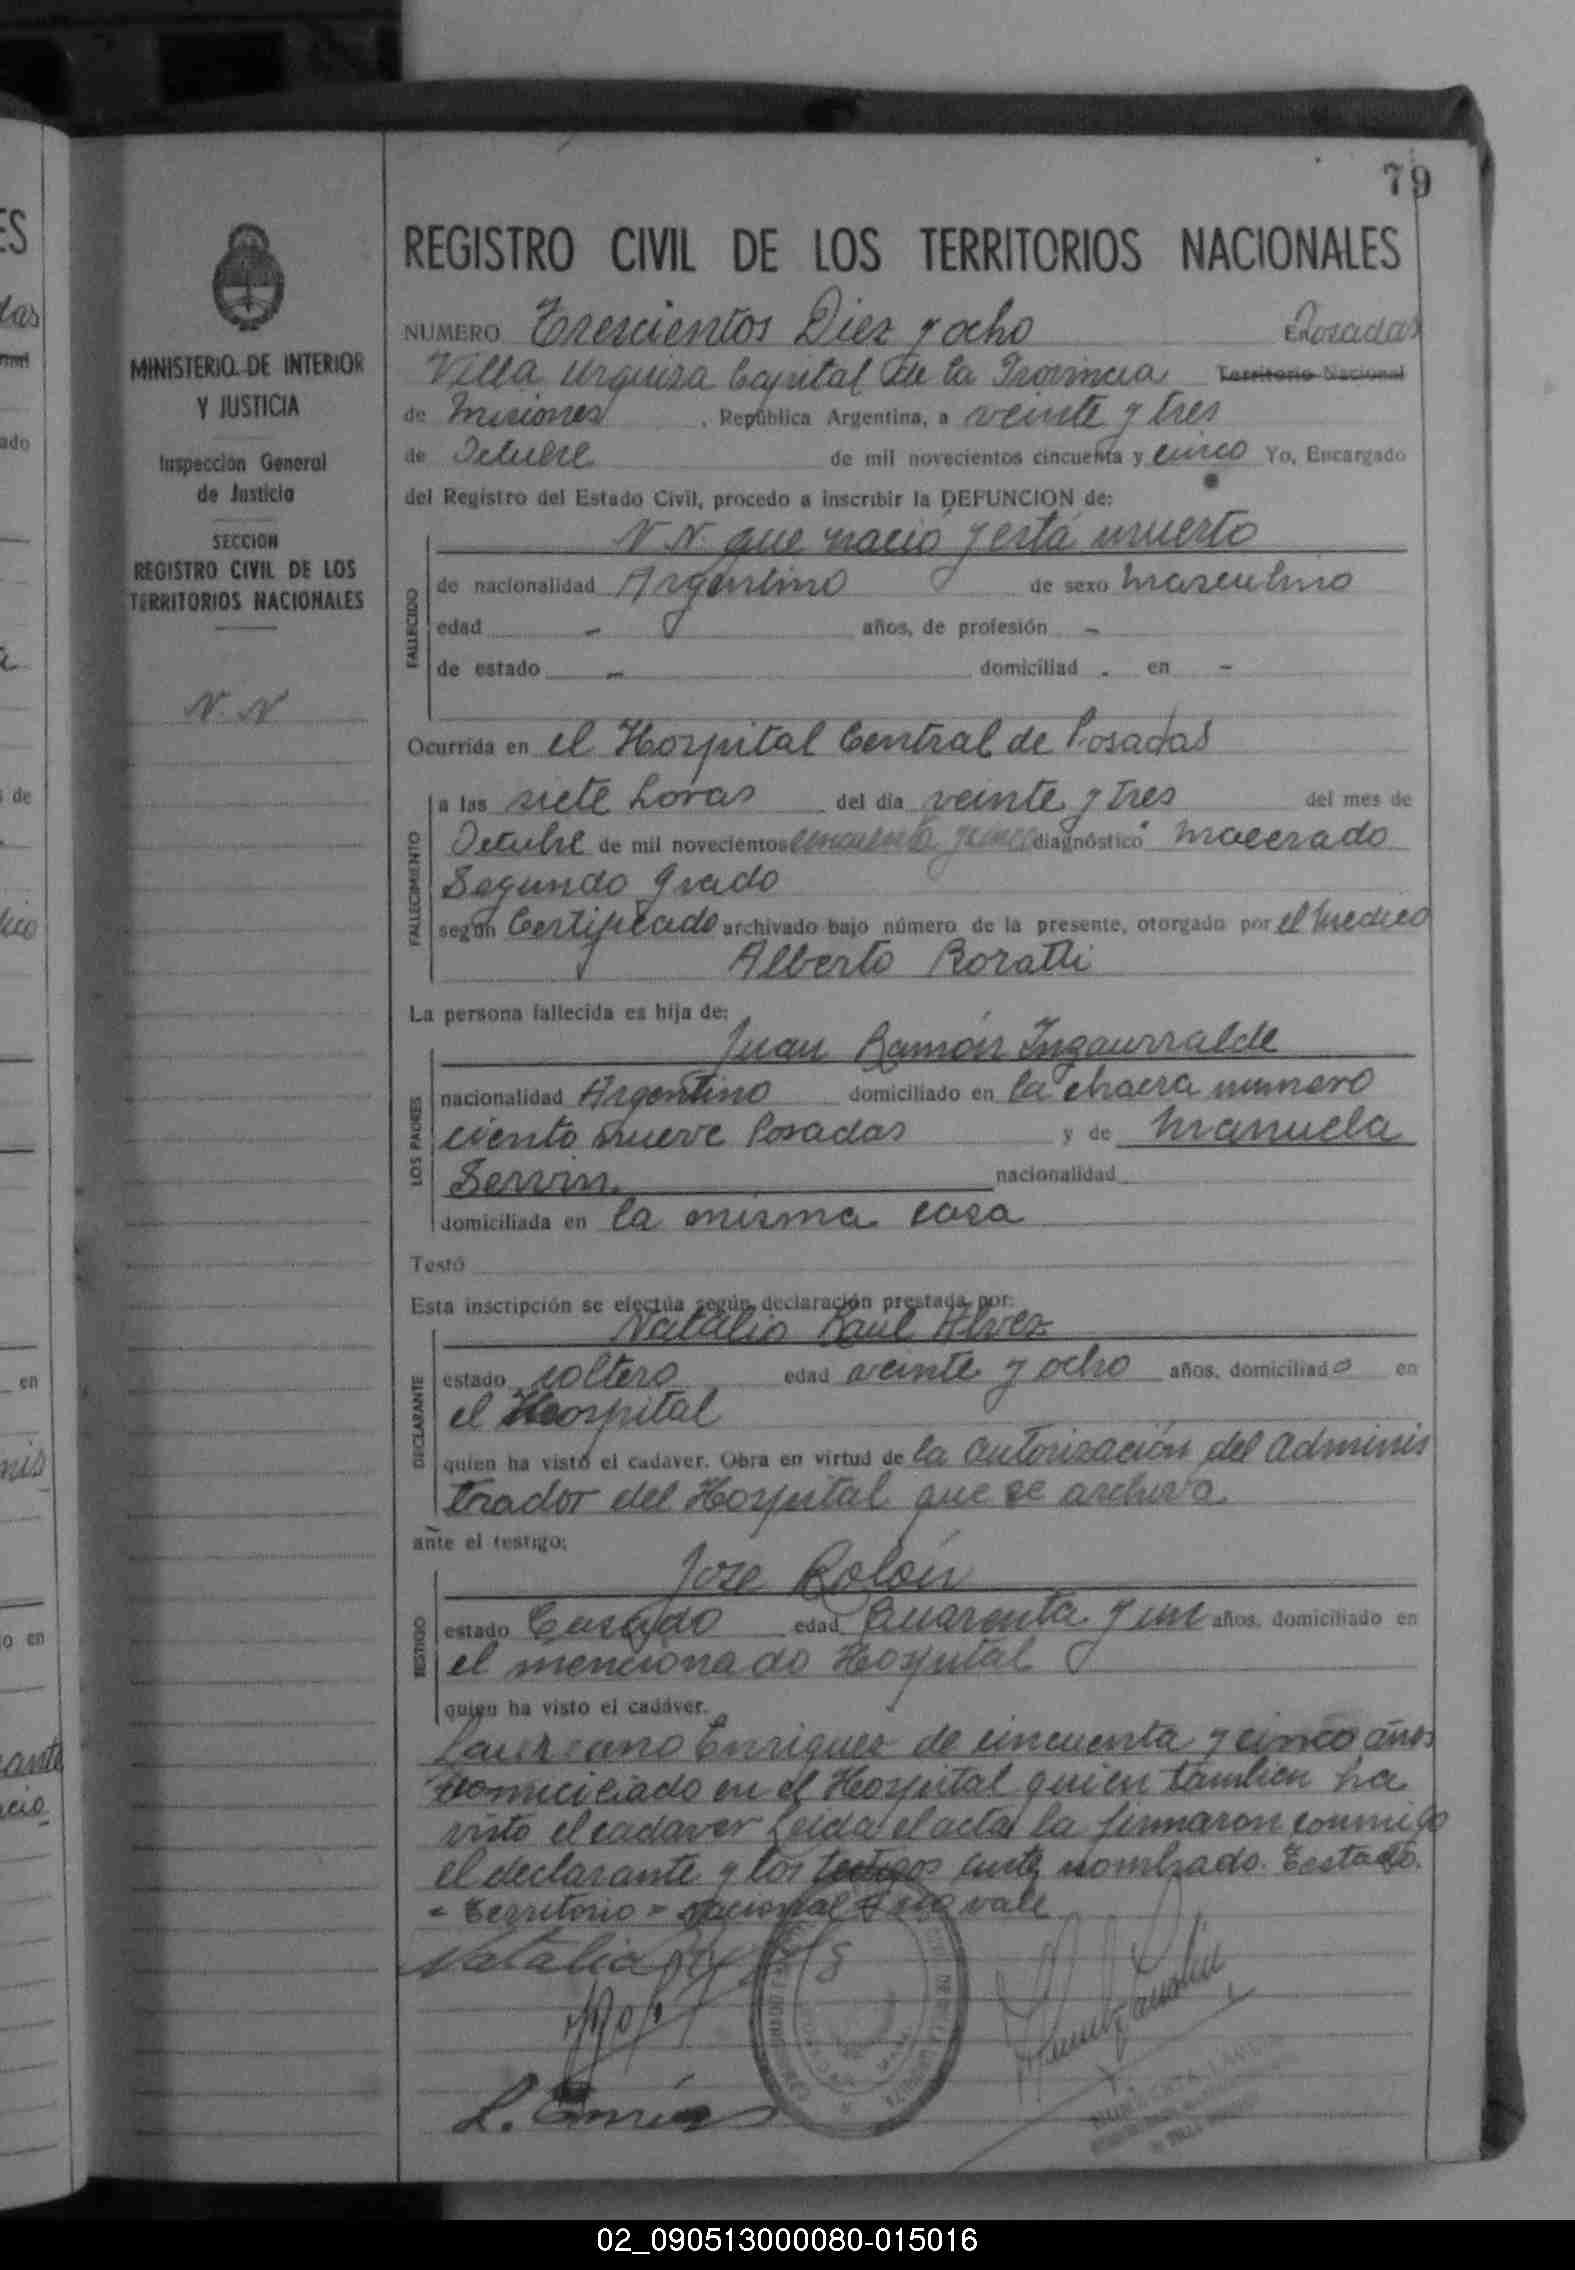 79
REGISTRO CIVIL DE LOS TERRITORIOS NACIONALES
MINISTERIO DE INTERIOR
Y JUSTICIA
Inspección General
de Justicia
SECCION
REGISTRO CIVIL DE LOS
TERRITORIOS NACIONALES
N. N
NUMERO Trescientos Diez y ocho En Posadas
Villa Urquiza Capital de la Provincia Territorio Nacional
de Misiones, República Argentina, a veinte y tres
de Octubre de mil novecientos cincuenta y cinco Yo, Encargado
del Registro del Estado Civil, procedo a inscribir la DEFUNCION de:
N N. que nació y está muerto
FALLECIDO
de nacionalidad Argentino de sexo Masculino
edad - años, de profesión -
de estado - domiciliad . en -
Ocurrida en el Hospital Central de Posadas
FALLECIMIENTO
a las siete horas del día veinte y tres del mes de
Octubre de mil novecientos cincuenta y cinco diagnóstico Macerado
Segundo grado
según Certificado archivado bajo número de la presente, otorgado por el Medico
Alberto Roratti
La persona fallecida es hija de:
LOS PADRES
Juan Ramón Ingaurralde
nacionalidad Argentino domiciliado en la chacra numero
ciento nueve Posadas y de Manuela
Servin. nacionalidad
domiciliada en la misma casa
Testó
Esta inscripción se efectúa según declaración prestada por:
DECLARANTE
Natalio Raul Alvez
estado soltero edad veinte y ocho años, domiciliado en
el Hospital
quien ha visto el cadáver. Obra en virtud de la autorización del Adminis
trador del Hospital que se archiva
ante el testigo:
TESTIGO
Jose Rolón
estado Casado edad Cuarenta y un años, domiciliado en
el mencionado Hospital
quien ha visto el cadáver.
Laureano Enriquez de cincuenta y cinco años
domiciliado en el Hospital quien tambien ha
visto el cadaver Leida el acta la firmaron conmigo
el declarante y los testigos ante nombrado. Testado.
= Territorio = Nacional = no vale
L. Enriquez
02_090513000080-015016